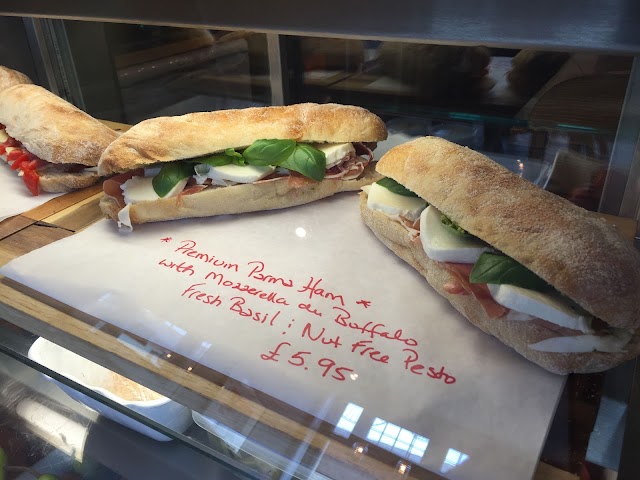 * Premium Parma Ham *
with Mozzerella du Buffalo
Fresh Basil ; Nut Free Pesto
£5.95